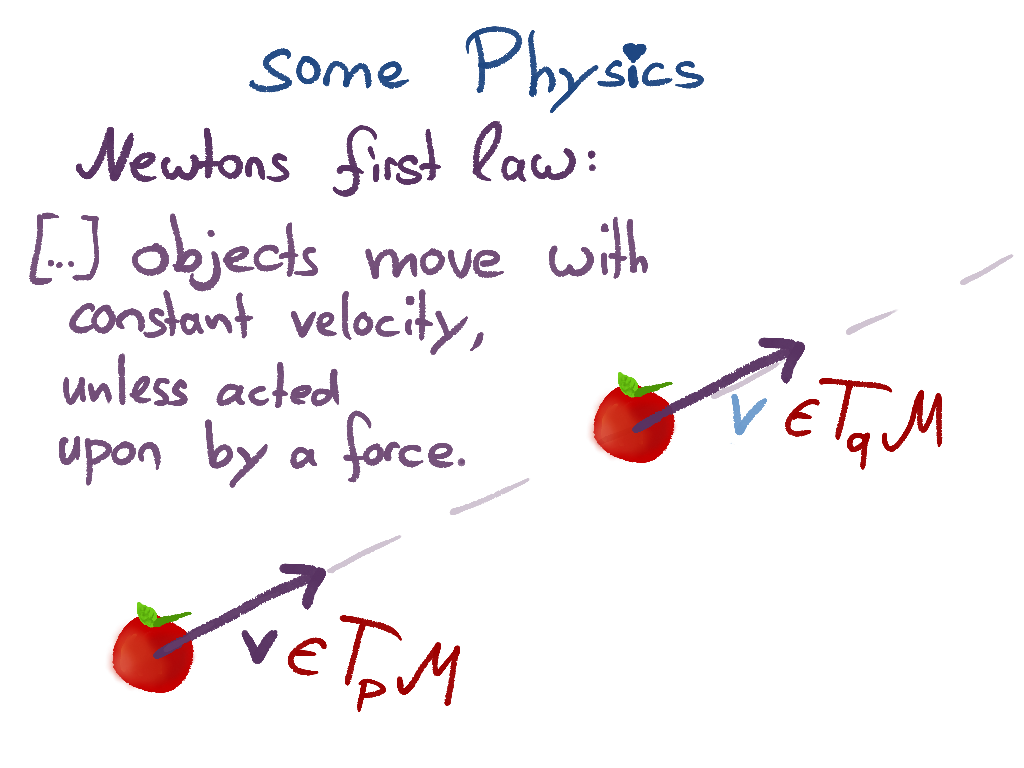 some Physics
Newtons first law:
[...] objects move with
constant velocity,
unless acted
upon by a force.
v ∈ T_q M
v ∈ T_p M